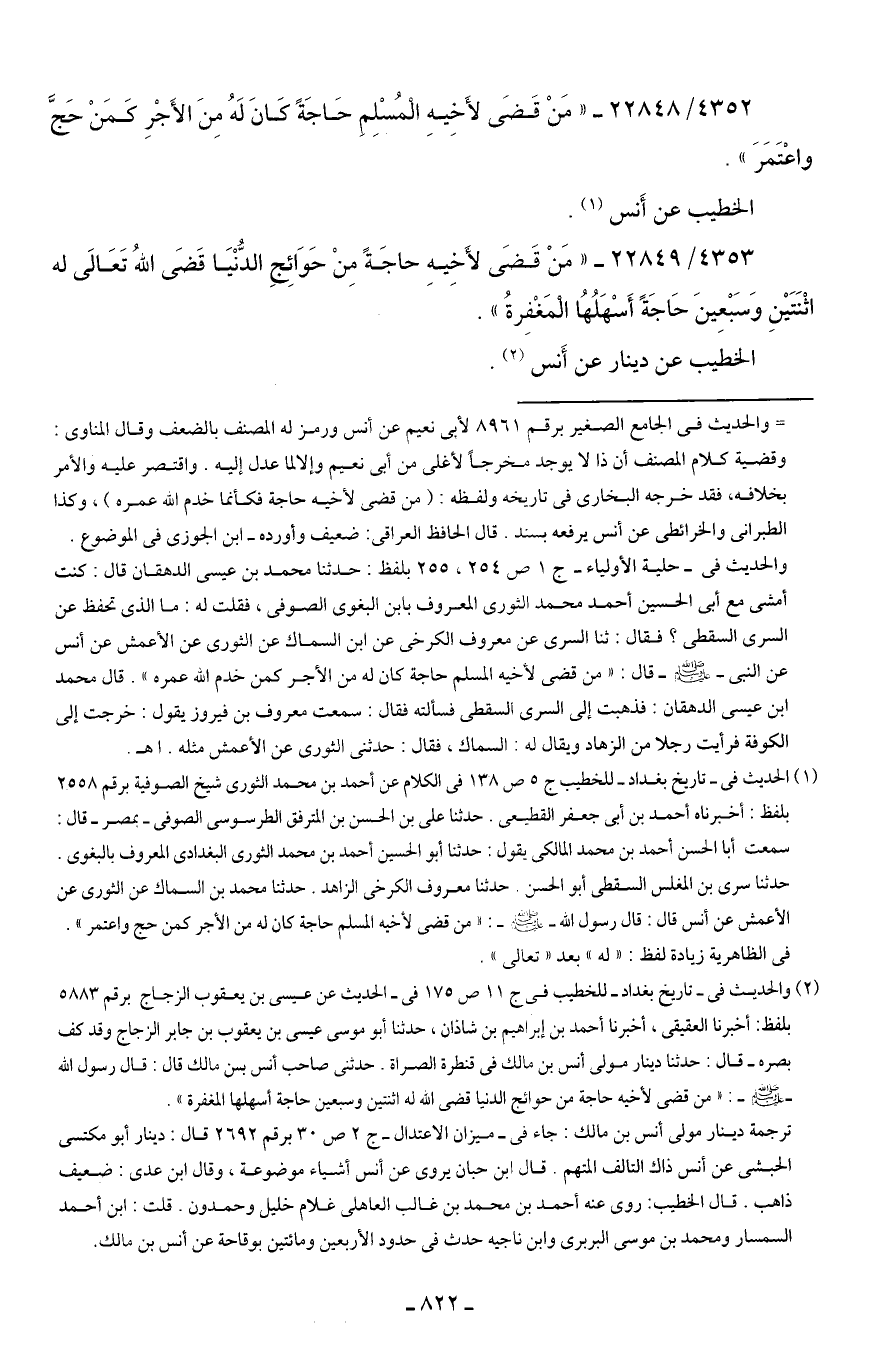 ٢٢٨٤٨/٤٣٥٢ ـ « مَنْ قَـضَى لأخيـهِ الْمُسْلِمِ حَـاجَةً كَـانَ لَهُ مِنَ الأَجْرِ كَـمَنْ حَجَّ
واعْتَمَرَ » .
الخطيب عن أَنس (١) .
٢٢٨٤٩/٤٣٥٣ ـ « مَنْ قَـضَى لأَخِيـهِ حاجَـةً مِنْ حَوَائِجِ الدُّنْيَـا قَضَى اللهُ تَعَـالَى له
اثْنَتَيْنِ وَسَبْعِينَ حَاجَةً أَسْهَلُهَا الْمَغْفِرةُ » .
الخطيب عن دينار عن أَنس (٢) .
= والحديث فـى الجامع الصـغير برقـم ٨٩٦١ لأبى نعيم عن أنس ورمـز له المصنف بالضعف وقـال المناوى :
وقضية كـلام المصنف أن ذا لا يوجد مـخرجـاً لأغلى من أبى نعـيم وإلالما عدل إليـه . واقتـصر عليـه والأمر
بخلافـه، فقد خـرجه البـخارى فى تاريخه ولفـظه : ( من قضى لأخيـه حاجة فكـأنما خدم الله عمـره ) ، وكذا
الطبرانى والخرائطى عن أنس يرفعه بسند . قال الحافظ العراقى: ضعيف وأورده ـ ابن الجوزى فى الموضوع .
والحديث فى ـ حليـة الأولياء ـ ج ١ ص ٢٥٤ ، ٢٥٥ بلفظ : حـدثنا محمـد بن عيسى الدهقـان قال : كنت
أمشى مع أبى الحـسين أحمـد محمـد الثورى المعـروف بابن البغوى الصـوفى ، فقلت له : مـا الذى تحفظ عن
السرى السقطى ؟ فـقال : ثنا السرى عن معروف الكرخى عن ابن السمـاك عن الثورى عن الأعمش عن أنس
عن النبى ـ ﷺ ـ قال : « من قضى لأخيه المسلم حاجة كان له من الأجـر كمن خدم الله عمره » . قال محمد
ابن عيسى الدهقـان : فذهبت إلى السرى السقطى فسألته فقال : سمعت معروف بن فيروز يقول : خرجت إلى
الكوفة فرأيت رجلا من الزهاد ويقال له : السماك ، فقال : حدثنى الثورى عن الأعمش مثله . اهـ .
(١) الحديث فى ـ تاريخ بغداد ـ للخطيب ج ٥ ص ١٣٨ فى الكلام عن أحمد بن محـمد الثورى شيخ الصـوفية برقم ٢٥٥٨
بلفظ : أخـبرناه أحمـد بن أبى جعـفر القطيـعى . حدثنا على بن الحـسن بن المترفق الطرسـوسى الصوفى ـ بمصـر ـ قال :
سمعت أبا الحسن أحمد بن محمد المالكى يقول : حدثنا أبو الحسين أحمد بن محمد الثورى البغدادى المعروف بالبغوى .
حدثنا سرى بن المغلس السـقطى أبو الحسن . حدثنا معـروف الكرخى الزاهد . حدثنا محمد بن السماك عن الثورى عن
الأعمش عن أنس قال : قال رسول الله ـ ﷺ ـ : « من قضى لأخيه المسلم حاجة كان له من الأجر كمن حج واعتمر » .
فى الظاهرية زيادة لفظ : « له » بعد « تعالى » .
(٢) والحديـث فى ـ تاريخ بغداد ـ للخطيب فـى ج ١١ ص ١٧٥ فى ـ الحديث عن عـيسى بن يعـقوب الزجـاج برقم ٥٨٨٣
بلفظ: أخبرنا العقيقى ، أخبرنا أحمد بن إبراهيم بن شاذان ، حدثنا أبو موسى عيسى بن يعقوب بن جابر الزجاج وقد كف
بصره ـ قـال : حدثنا دينار مـولى أنس بن مالك فى قنطرة الصـراة . حدثنى صاحب أنس بـس مالك قال : قـال رسول الله
ـ ﷺ ـ : « من قضى لأخيه حاجة من حوائج الدنيا قضى الله له اثنتين وسبعين حاجة أسهلها المغفرة » .
ترجمة ديـنار مولى أنس بن مالك : جاء فى ـ مـيزان الاعتدال ـ ج ٢ ص ٣٠ برقم ٢٦٩٢ قـال : دينار أبو مكتسى
الحـبشى عن أنس ذاك التالف المتهم . قـال ابن حبان يروى عن أنس أشـياء موضـوعـة ، وقال ابن عدى : ضـعيف
ذاهب . قـال الخطيب: روى عنه أحمـد بن محـمد بن غـالب العاهلى غـلام خليل وحمـدون . قلت : ابن أحـمد
السمسار ومحمد بن موسى البربرى وابن ناجيه حدث فى حدود الأربعين ومائتين بوقاحة عن أنس بن مالك.
ـ ٨٢٢ ـ